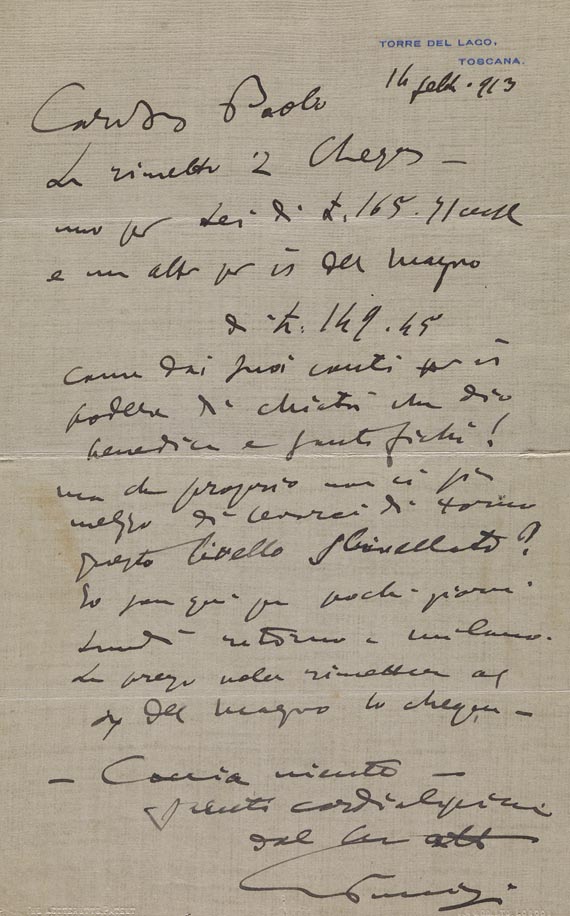 TORRE DEL LAGO,
TOSCANA.
14 febb. 913
Caro Paolo
Le rimetto 2 Cheques —
uno per Lei di £. 165.
e un altro per il Del Magro
di £. 149.45
come dai suoi conti per il
podere di Chiatri che dio
benedica e fichi!
ma che proprio non ci sia
mezzo di levarci di torno
questo livello sbivellato?
Io son qui per pochi giorni
Lunedì ritorno a Milano.
La prego voler rimettere al
Del Magro lo cheque —
— Caccia niente —
cordialissimi
dal
Puccini